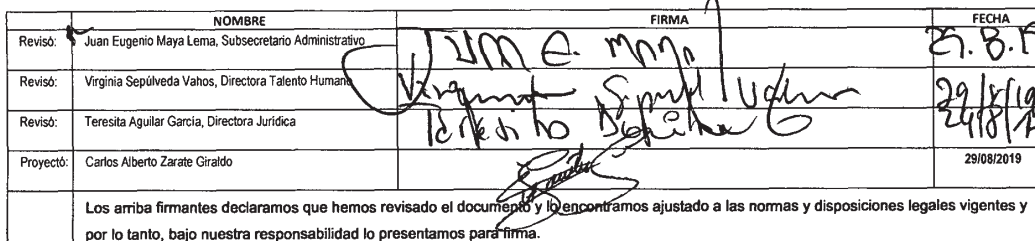 NOMBRE FIRMA FECHA
Revisó: Juan Eugenio Maya Lema, Subsecretario Administrativo Juan E. Maya 29.8.19
Revisó: Virginia Sepúlveda Vahos, Directora Talento Humano Virginia Sepúlveda Vahos 29/8/19
Revisó: Teresita Aguilar García, Directora Jurídica Teresita Aguilar G 29/8/19
Proyectó: Carlos Alberto Zarate Giraldo 29/08/2019
Los arriba firmantes declaramos que hemos revisado el documento y lo encontramos ajustado a las normas y disposiciones legales vigentes y
por lo tanto, bajo nuestra responsabilidad lo presentamos para firma.